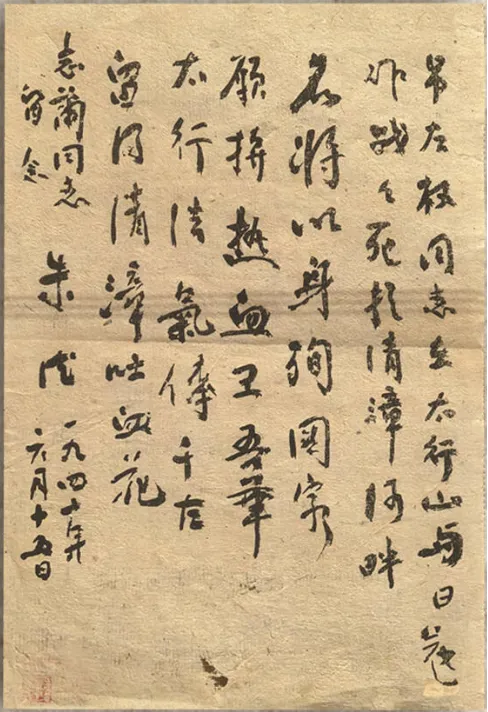 吊左权同志在太行山与日寇
作战々死於清漳河畔
名将以身殉國家
願拼熱血卫吾華
太行浩氣傳千古
留得清漳吐血花
志蘭同志
留念
朱德
一九四年
六月十五日